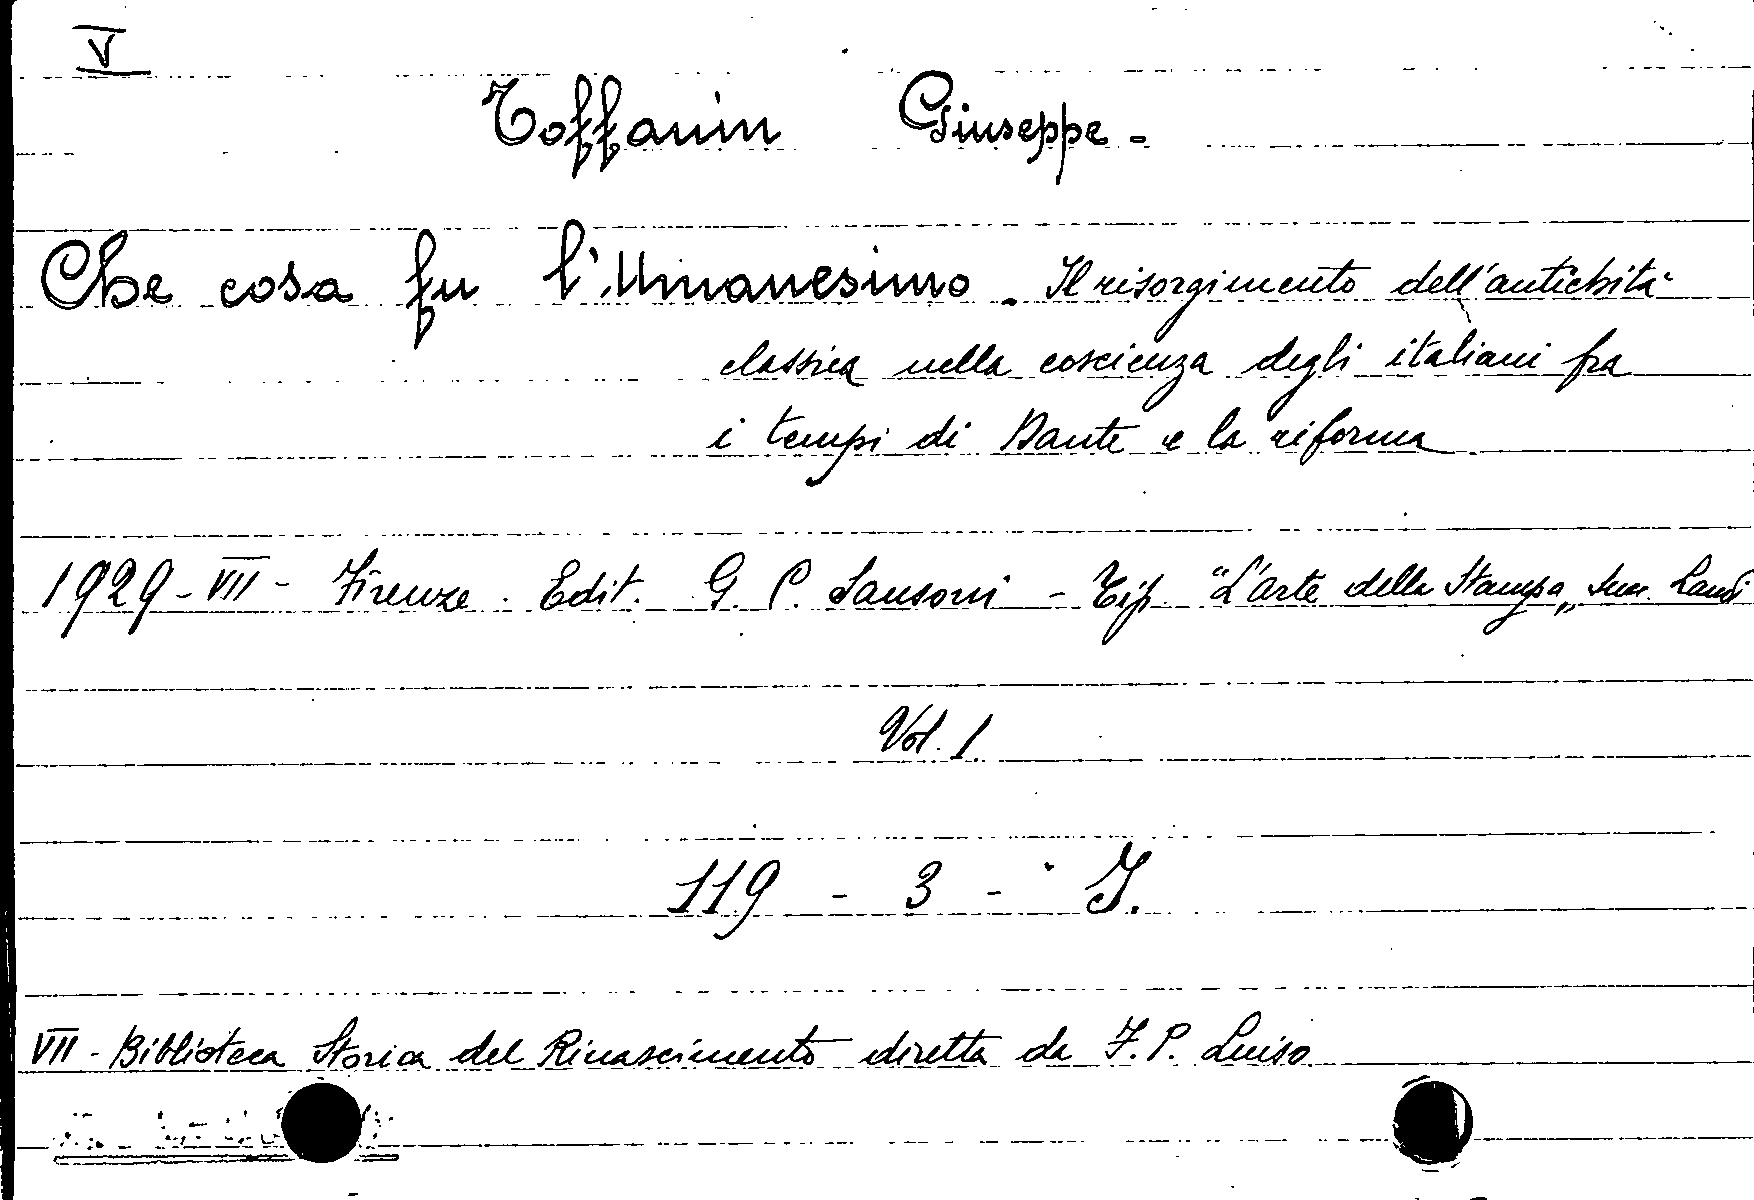 V
Toffanin Giuseppe -
Che cosa fu l'Umanesimo. Il risorgimento dell'antichità
classica nella coscienza degli italiani fra
i tempi di Dante e la riforma
1929 - VII - Firenze. Edit. G. C. Sansoni - Tip. "L'arte della Stampa„ succ. Landi
Vol. 1.
119 - 3 - I.
VII - Biblioteca Storica del Rinascimento diretta da F. P. Luiso